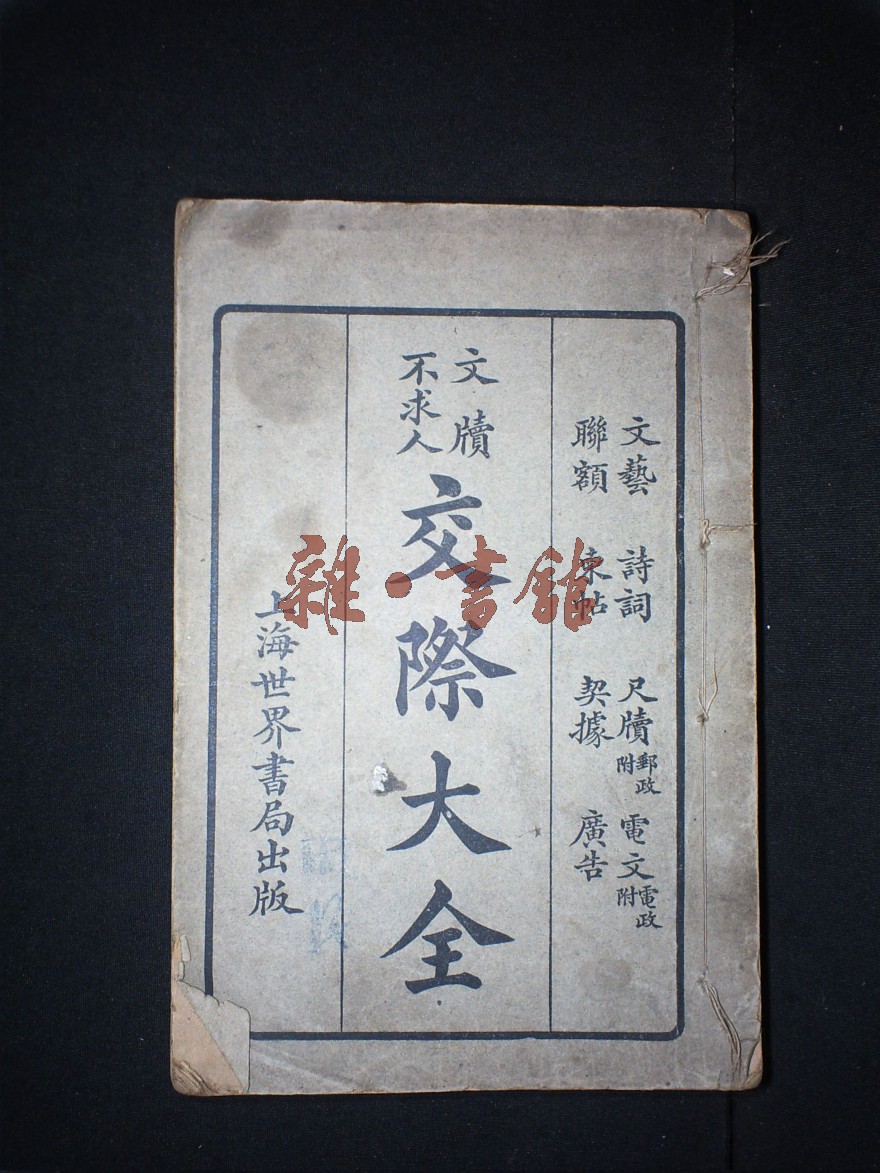 文藝 詩詞 尺牘 附郵政 電文 附電政
聯額 柬帖 契據 廣告
文牘
不求人
交際大全
上海世界書局出版
雜·書館